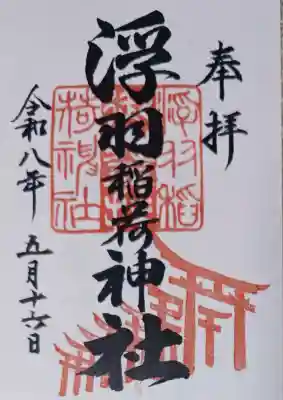 奉拝
浮羽稲荷神社
浮羽稲
荷神社
令和八年 五月十六日